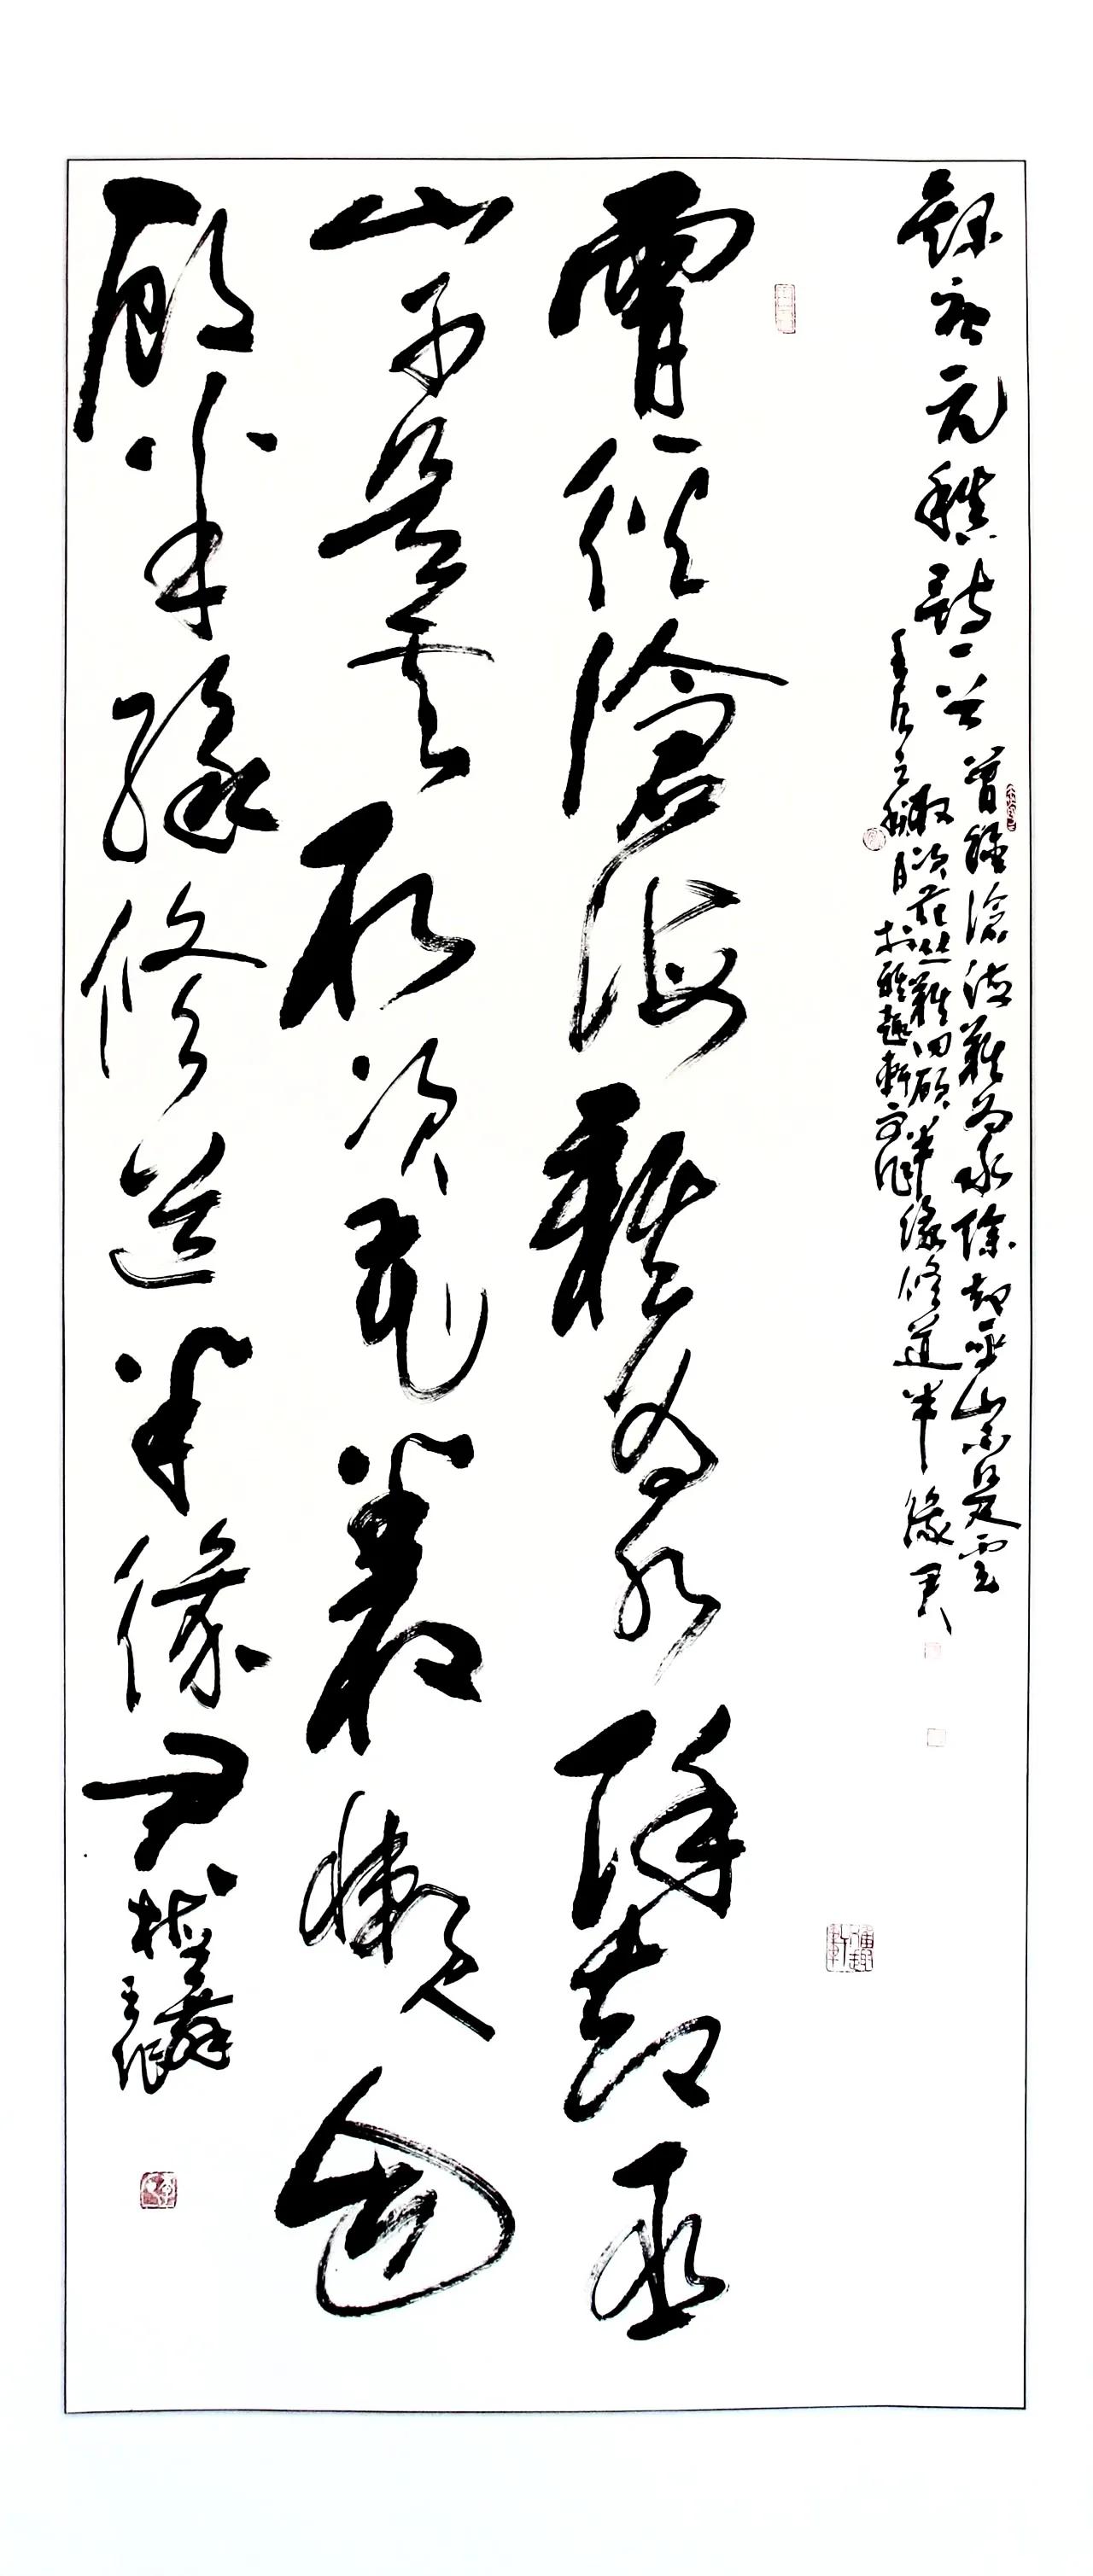 錄唐元稹詩一首
曾經滄海難为水除却巫山不是雲
取次花丛難回顧半緣修道半緣君
壬辰之秋月
於雅趣軒
曾經滄海難為水除却巫
山不是雲取次花叢懶回
顧半緣修道半緣君